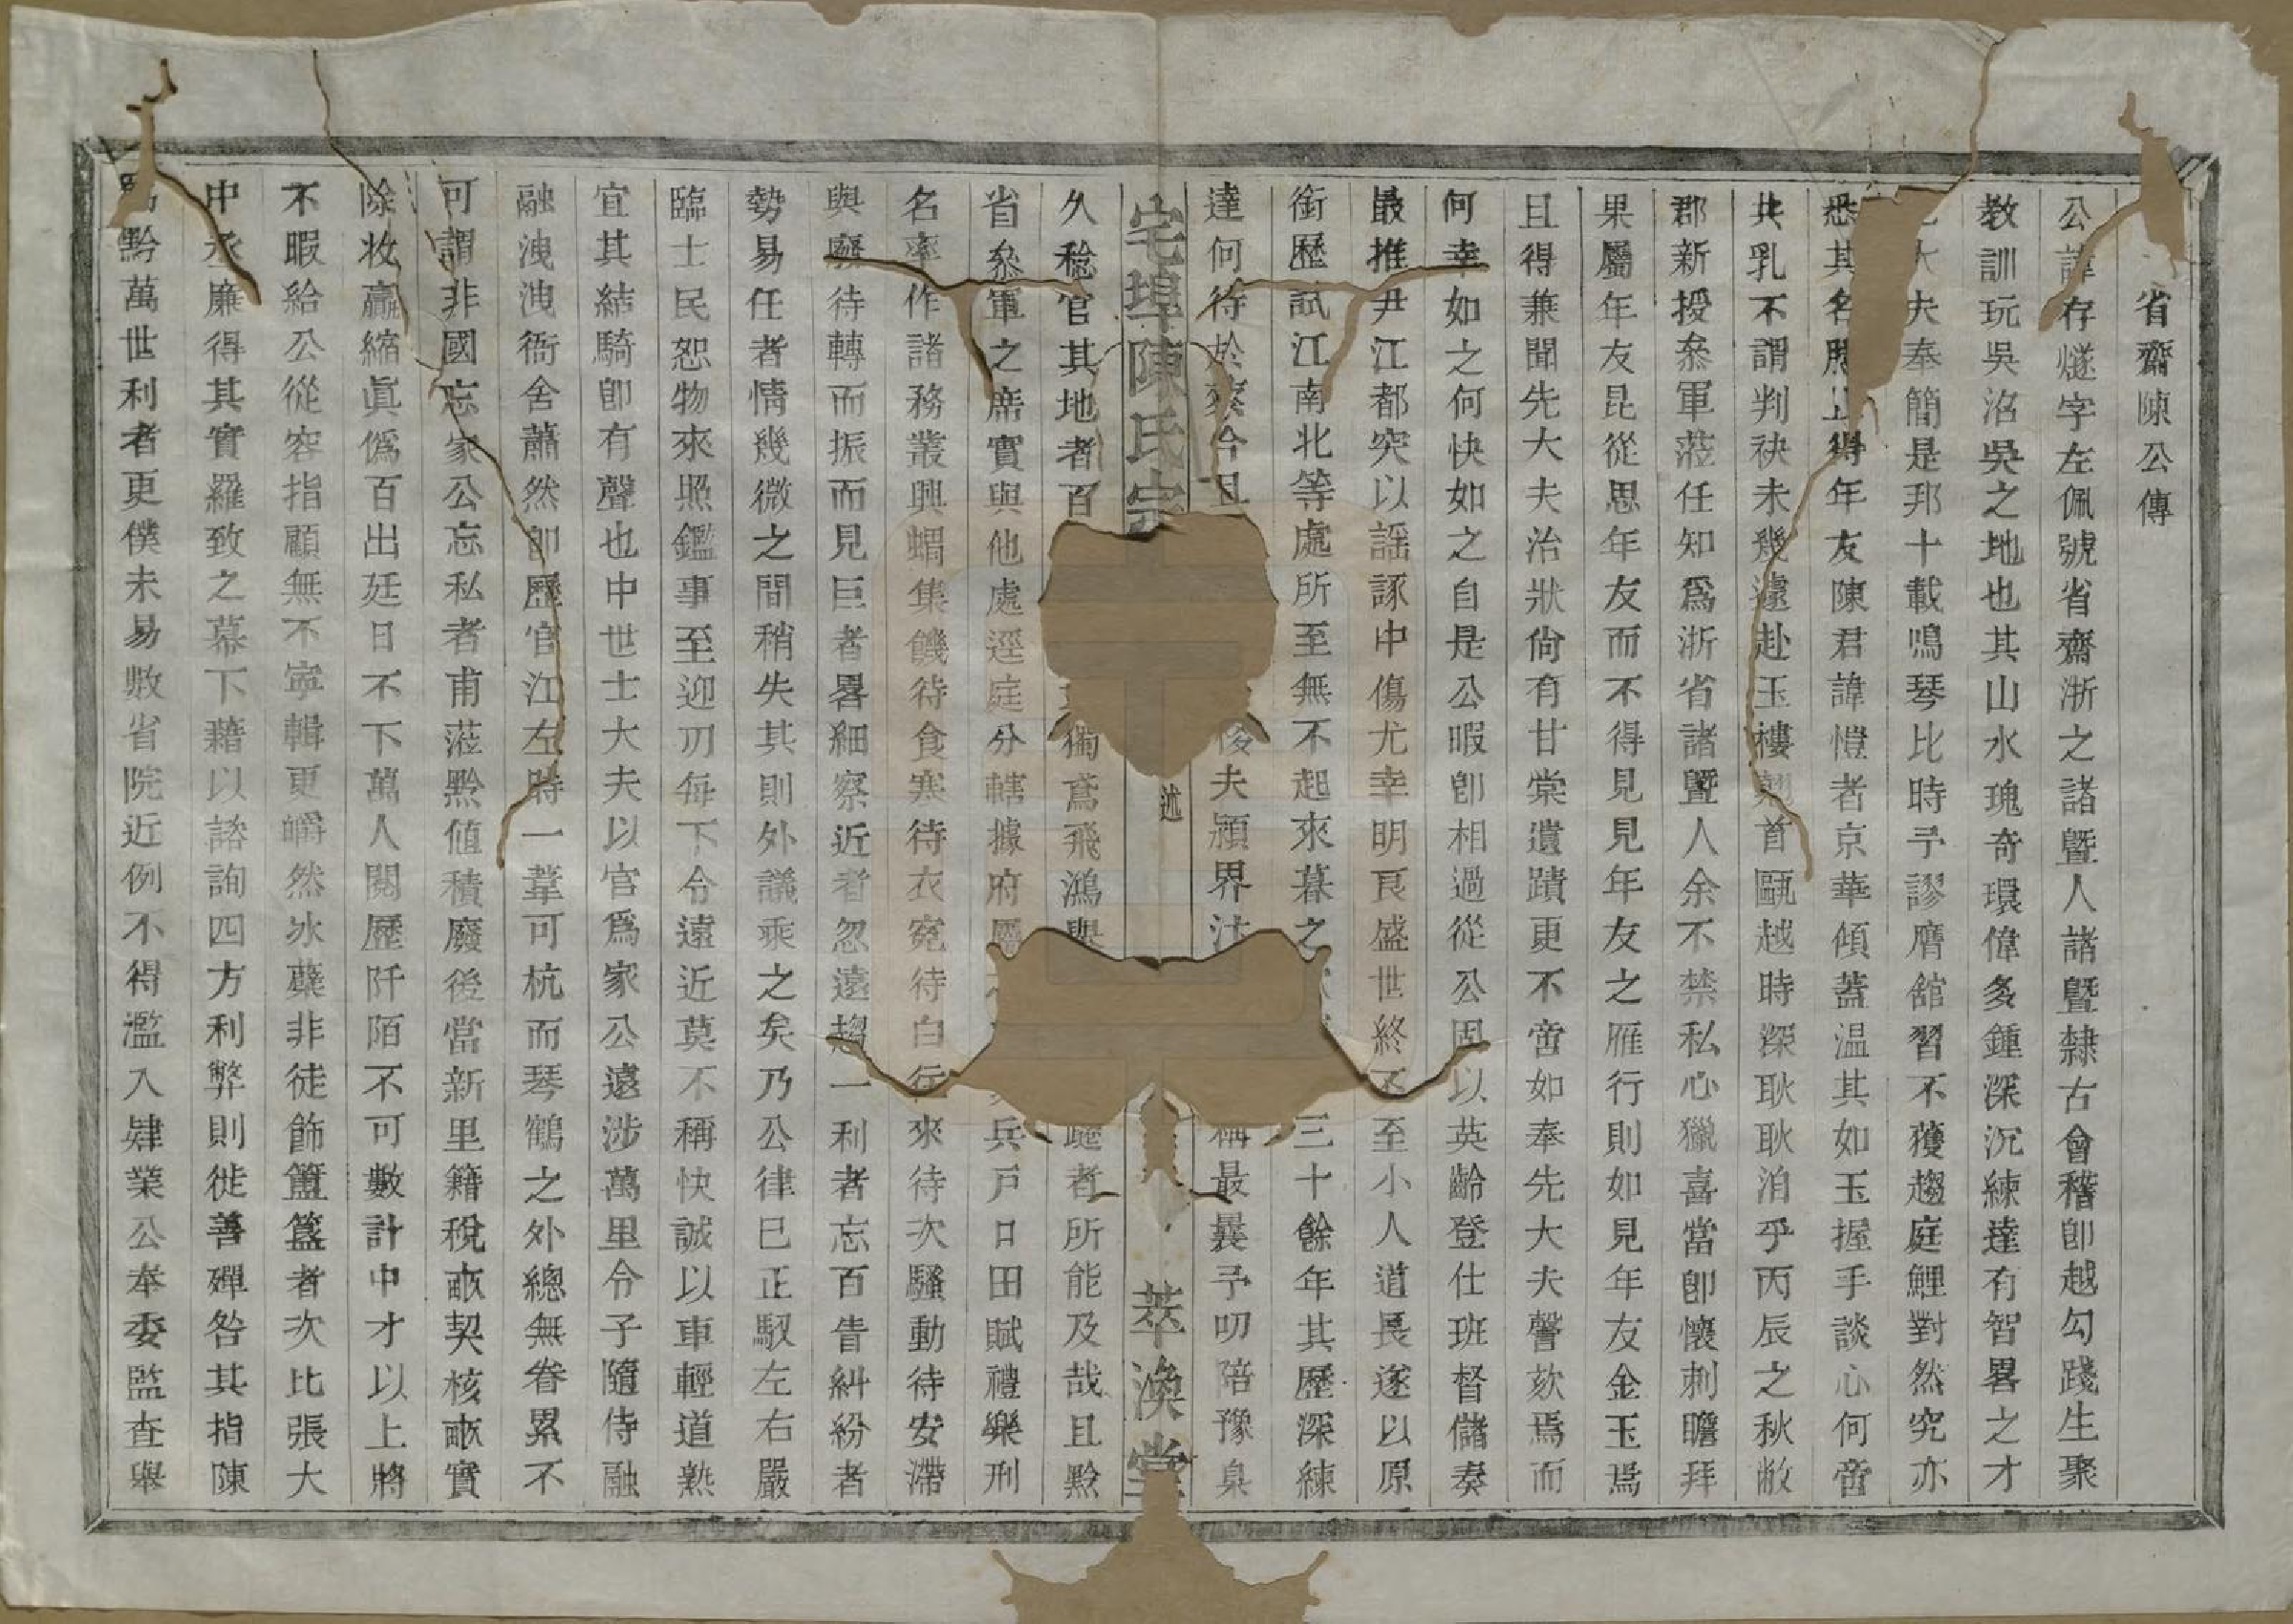 省齋陳公傳
公諱存燧字左佩號省齋浙之諸暨人諸暨隸古會稽卽越勾踐生聚
教訓玩吳沼吳之地也其山水瑰奇環偉多鍾深沉練達有智畧之才
大夫奉簡是邦十載鳴琴比時予謬膺舘習不獲趨庭鯉對然究亦
悉其名得年友陳君諱愷者京華傾蓋温其如玉握手談心何啻
共乳不謂判袂未幾遠赴玉樓翹首甌越時深耿耿洎乎丙辰之秋敝
郡新授叅軍蒞任知爲浙省諸暨人余不禁私心獵喜當卽懷刺瞻拜
果屬年友昆從思年友而不得見見年友之雁行則如見年友金玉焉
且得兼聞先大夫治狀尙有甘棠遺蹟更不啻如奉先大夫謦欬焉而
何幸如之何快如之自是公暇卽相過從公固以英齡登仕班督儲奏
最推尹江都突以謡諑中傷尤幸明良盛世終不至小人道長遂以原
銜歷試江南北等處所至無不起來暮之三十餘年其歷深練
達何待於蔡今且後夫頴界汁稱最曩予叨陪豫臬
宅埠陳氏宗
述
萃渙堂
久稔官其地者百獨鳶飛鴻與蹝者所能及哉且黔
省叅軍之席實與他處逕庭分轄據府屬兵戸口田賦禮樂刑
名率作諸務叢興蝟集饑待食寒待衣寃待白行來待次騷動待安滯
與廢待轉而振而見巨者畧細察近者忽遠趨一利者忘百眚糾紛者
勢易任者情幾微之間稍失其則外議乘之矣乃公律巳正馭左右嚴
臨士民恕物來照鑑事至迎刃每下令遠近莫不稱快誠以車輕道熟
宜其結騎卽有聲也中世士大夫以官爲家公遠涉萬里令子隨侍融
融洩洩衙舍蕭然卽歷官江左時一葦可杭而琴鶴之外總無眷累不
可謂非國忘家公忘私者甫蒞黔値積廢後當新里籍稅畝契核畝實
除收贏縮眞僞百出廷日不下萬人閱歷阡陌不可數計中才以上將
不暇給公從容指顧無不寜輯更皭然冰蘗非徒飾簠簋者次比張大
中丞廉得其實羅致之幕下藉以諮詢四方利弊則徙善殫咎其指陳
黔萬世利者更僕未易數省院近例不得濫入肄業公奉委監查舉